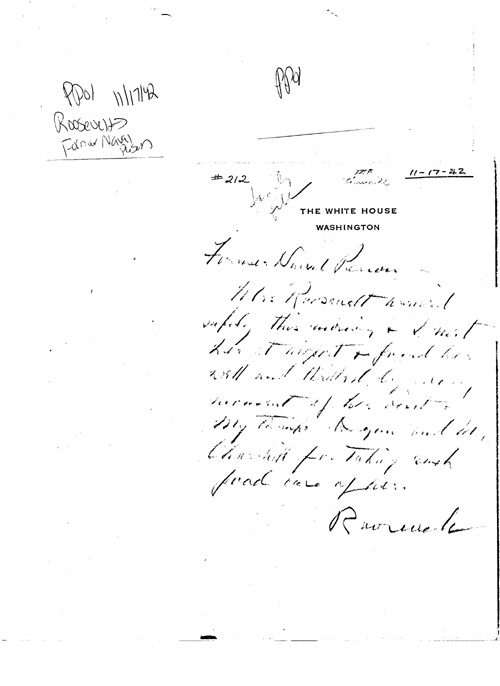 PPO1 11/17/42
PPO1
Roosevelt
Former Naval
Person
#212
family
file
11-17-42
THE WHITE HOUSE
WASHINGTON
Former Naval Person
Mrs Roosevelt arrived
safely this morning & I met
her at airport & found her
well and thrilled by every
moment of her visit.
My thanks to you and Mrs.
Churchill for taking such
good care of her.
Roosevelt